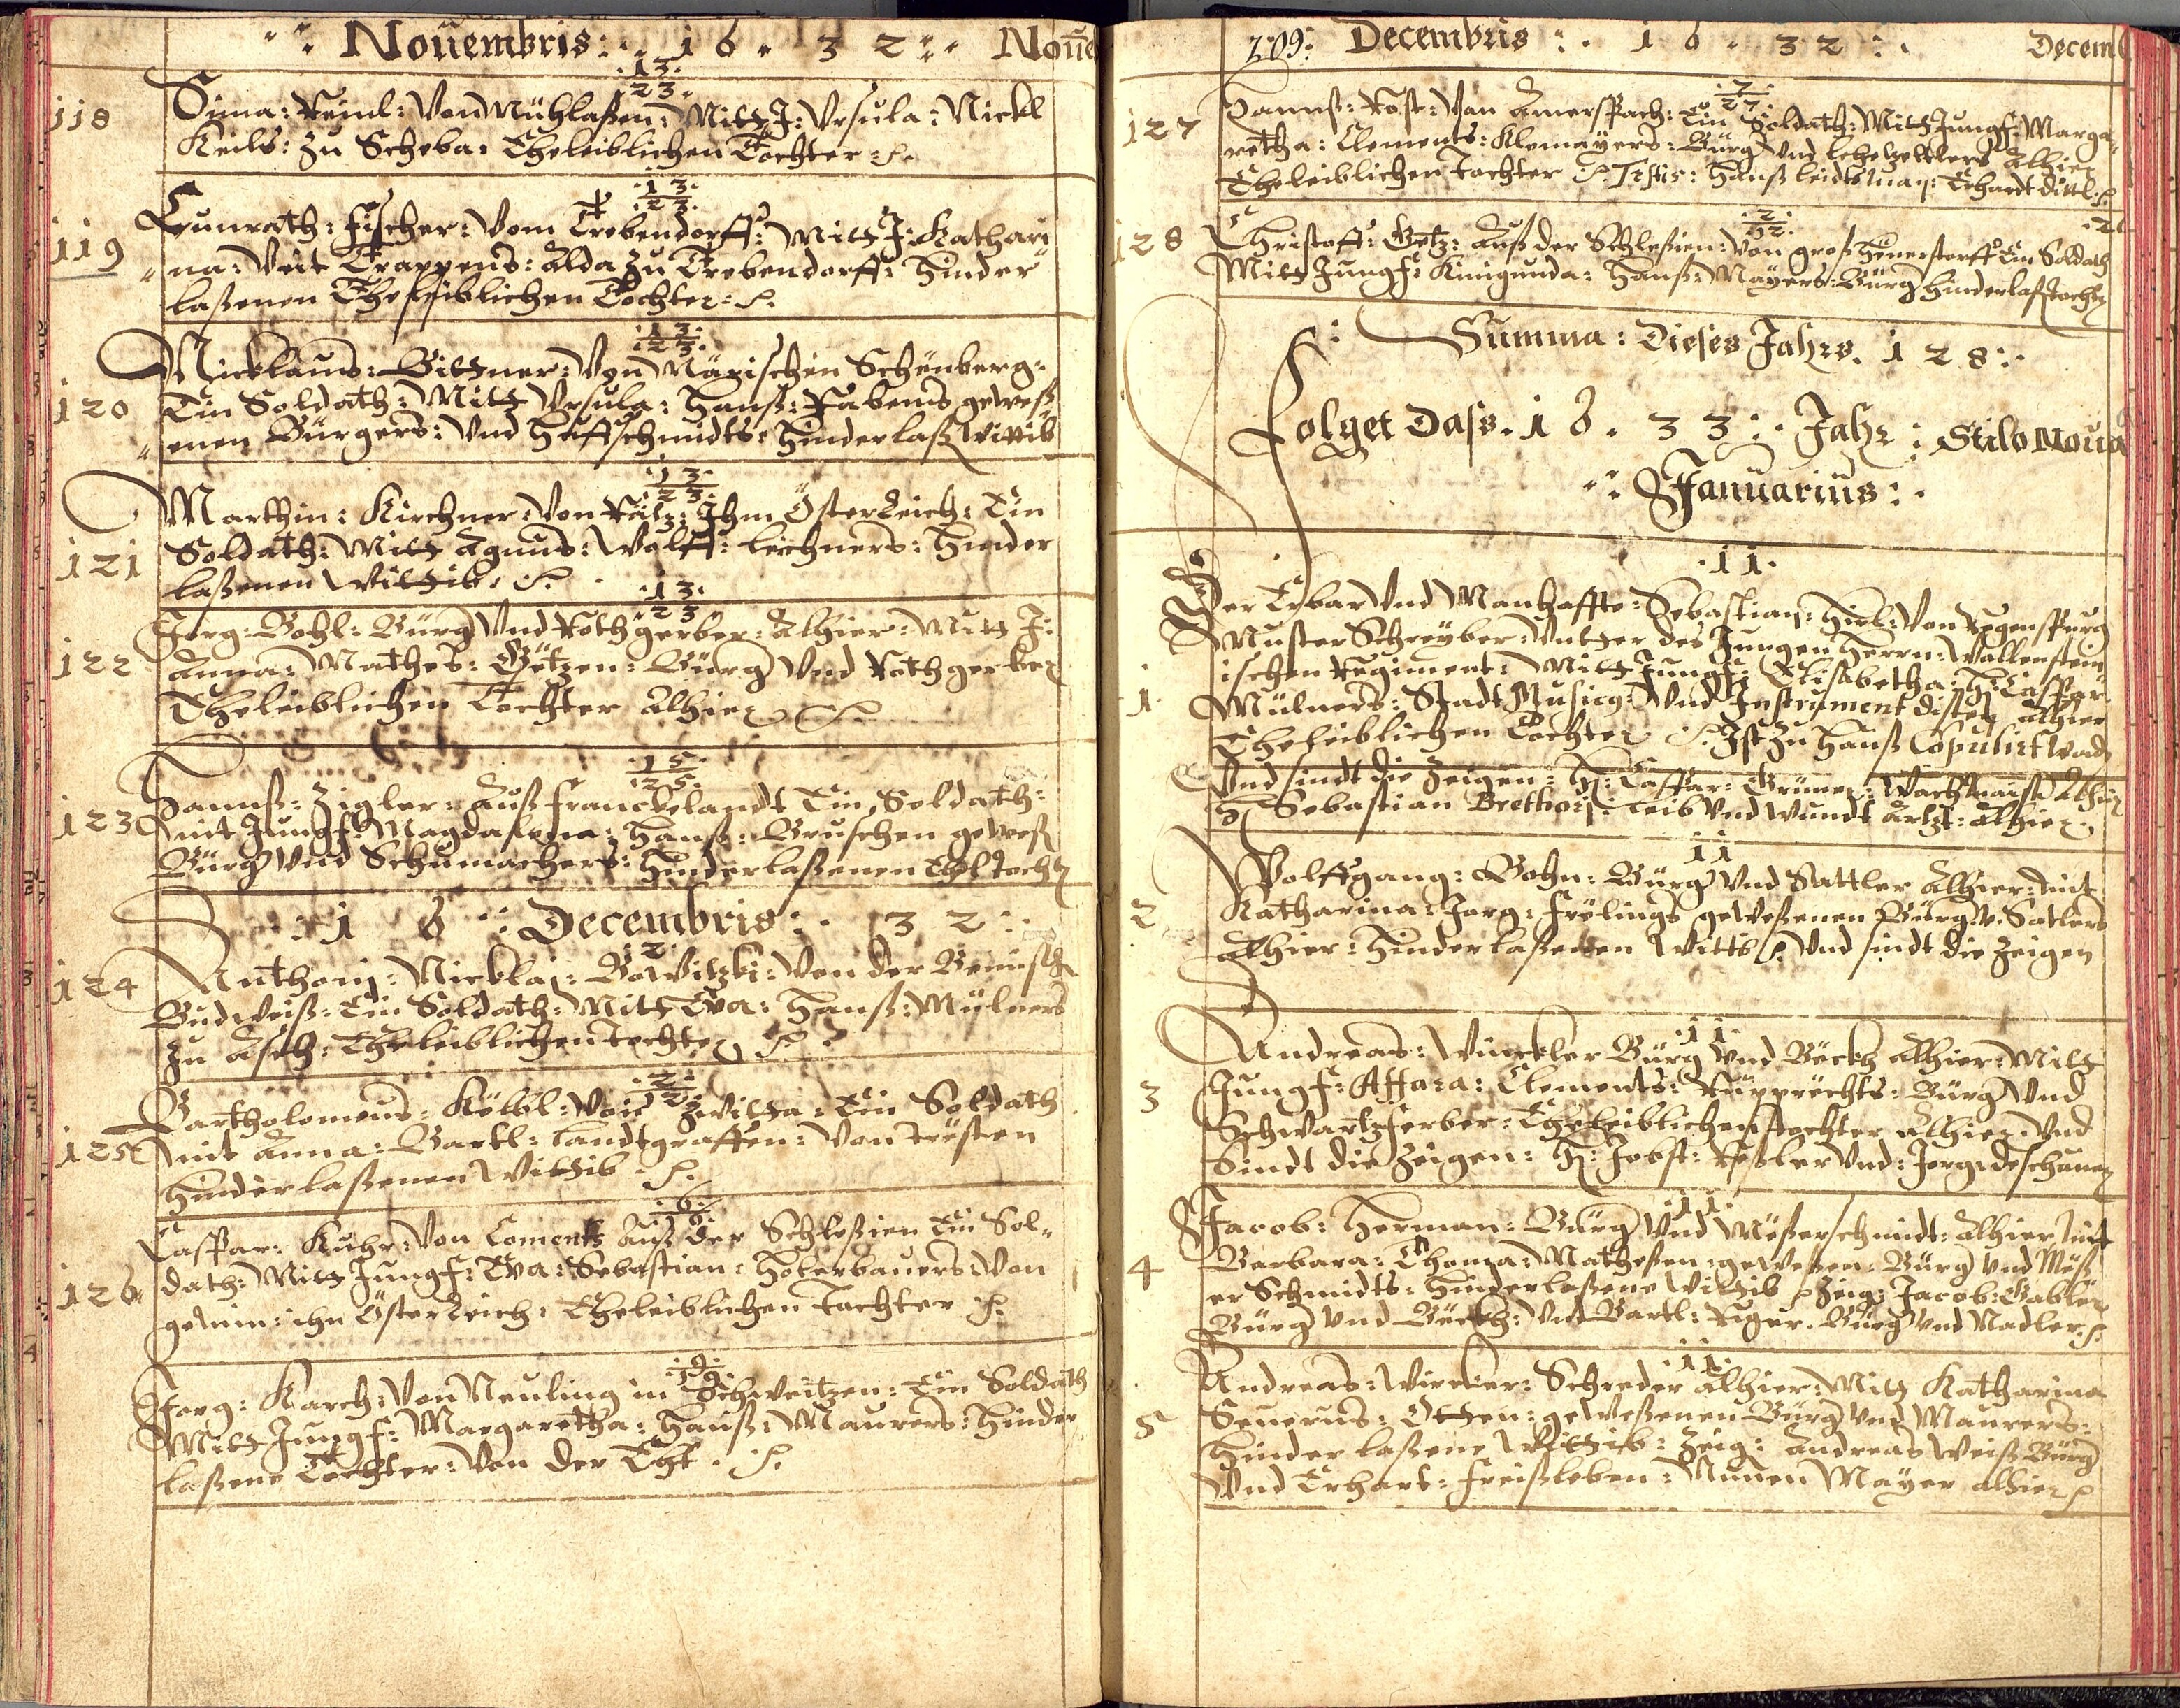 Nouembris: 1 6 3 2 Noue
13
23
118
Sima: Reinl: Von Mühlaßen: Mitt J: Vrsula: Nickl
Keils: zu Scheba: Eheleiblichen Tochter
13
23
119
Cunrath: fischer: Vom Trebendorff: Mitt J: Kathari
na: Veit Trappens: alda zu Trebendorff: hinder
laßenen Eheleiblichen Tochter
13
23
120
Nicklaus: Bittner: Von Märischen Schönberg:
Ein Soldath: Mitt Vrsula: Hanß: Fabens geweß
enen Bürgers: Vnd Huffschmidts: hinderlaß Wittib
13
23
121
Marthin: Kirchner: Von Rätz: Ihm Österreich: Ein
Soldath: Mitt Agnus: Wolff: leichners: Hinder
laßenen Wittib
13
23
122
Jorg: Bohl: Bürg Vnd Rothgerber: Alhier: Mitt J:
Anna: Mathes: Götzen: Bürg Vnd Rothgerber
Eheleiblichen Tochter Alhier
15
25
123
Hannß: Zigler: Auß franckelandt Ein Soldath:
mit Jungf: Magdalena: Hanß: Bruschen geweß
Bürg Vnd Schumachers: Hinderlaßenen Ehl Tocht
1 6 Decembris: 3 2
2
124
Anthonj: Nicklaj: Bowitzki: Von der Bemisch
Budweiß: Ein Soldath: Mitt Eva: Hanß: Mülners
zu Asch: Eheleiblichen tochter
2
12
125
Bartholomeus: Kölbl: Von Zwitta: Ein Soldath
mit Anna: Bartl: landtgraffen: Von
hinderlaßenen Wittib
6
126
Caspar: Kuhr: Von Coments Auß der Schleßien Ein Sol
dath: Mitt Jungf: Eva: Sebastian: Holerbauers: Von
ihn Österreich: Eheleiblichen tochter
9
19
Jorg: Karch: Von Neuling in Schweitzen: Ein Soldath
Mitt Jungf: Margaretha: Hanß: Maurers: Hinder
laßene Tochter: Von der Eht
209: Decembris: 1 6 3 2 Decemb
7
27
127
Hannß: Rost: Von Amerspach: Ein Soldath: Mitt Jungf: Marga
retha: Clements: Klemayers: Bürg Vnd lebzeltlers Alhier
Eheleiblichen tochter Testis: Hanß leidtsman: Erhardt dittl
2
12
128
Christoff: Götz: Auß der Schleßien: Von groß Hennerstorff Ein Soldath
Mitt Jungf: Kunigunda: Hanß: Mayers: Bürg hinderlaß tochter
Summa: Dieses Jahrs. 1 2 8
Folget Dass. 1 6. 3 3: Jahr: Stilo Noua
Januarius:
11
1
Der Erbar Vnd Manhaffte: Sebastian: Hirl: Von Regenspurg
Muster Schreyber: Vnter des Jungen Herrn: Wallenstein
ischen Regiment: Mitt Jungf: Elisabetha: H: Caspar
Mülners: Stadt Musicq: Vnd Instrument disten Alhier
Eheleiblichen Tochter Ist zu Hanß Copulirt word
Vnd sindt die Zeigen: H: Caspar: Grüner: Wachtmaist Alhier
H Sebastian Brethorst: leib Vnd wundt Artzt: Alhier
11
2
Wolffgang: Bohn: Bürg Vnd Sattler Alhier: mit
Katharina: Jorg: frölings geweßenen Bürg v. Satlers
Alhier: hinderlaßenen Wittib Vnd sindt die Zeigen
11
3
Andreas: Winckler Bürg Vnd Böckh Alhier: Mitt
Jungf: Affara: Clements: Rupprechts: Bürg Vnd
Schwartzferber: Eheleiblichen tochter Alhier: Vnd
Sindt die Zeigen: H: Jobst: Vnd: Jorg:
11
4
Jacob: Herman: Bürg Vnd Meßerschmidt: Alhier mit
Barbara: Thoma: Matheßen: geweßen: Bürg Vnd Meß
er Schmidts: Hinderlaßene Wittib Zeig: Jacob: Gabler
Bürg Vnd Böckh: Vnd Bartl: Bürg Vnd Nadler
11
5
Andreas: Wircker: Schreder Alhier: Mitt Katharina
Seuerus: Otten: geweßenen Bürg Vnd Maurers:
Hinderlaßene Wittib: Zeig: Andreas Weiß Bürg
Vnd Erhart: freißleben: Mayer Alhier